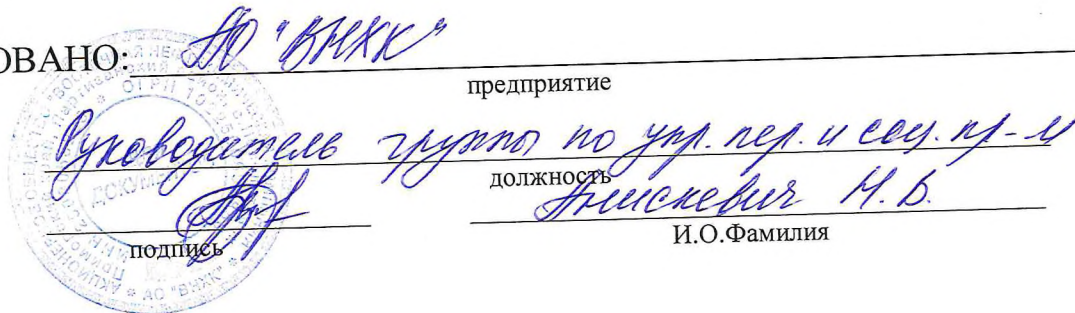 ОВАНО: АО "ВНХК"
предприятие
Руководитель группы по упр. пер. и соц. пр-м
должность
Анискевич Н. В.
подпись
И.О.Фамилия
АО "ВНХК"